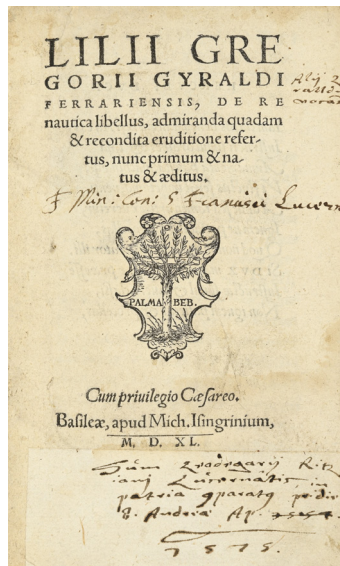 LILII GRE
GORII GYRALDI
FERRARIENSIS, DE RE
nautica libellus, admiranda quadam
& recondita eruditione refer-
tus, nunc primum & na-
tus & æditus.
Min: Con: S Francisci Lucern
PALMA BEB.
Cum priuilegio Cæsareo.
Basileæ, apud Mich. Isingrinium,
M. D. XL.
Sum
Lucernatis in
patria
S. Andreæ Ap.
1575.